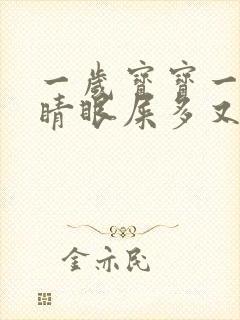 一岁宝宝一
睛眼屎多又
金亦民